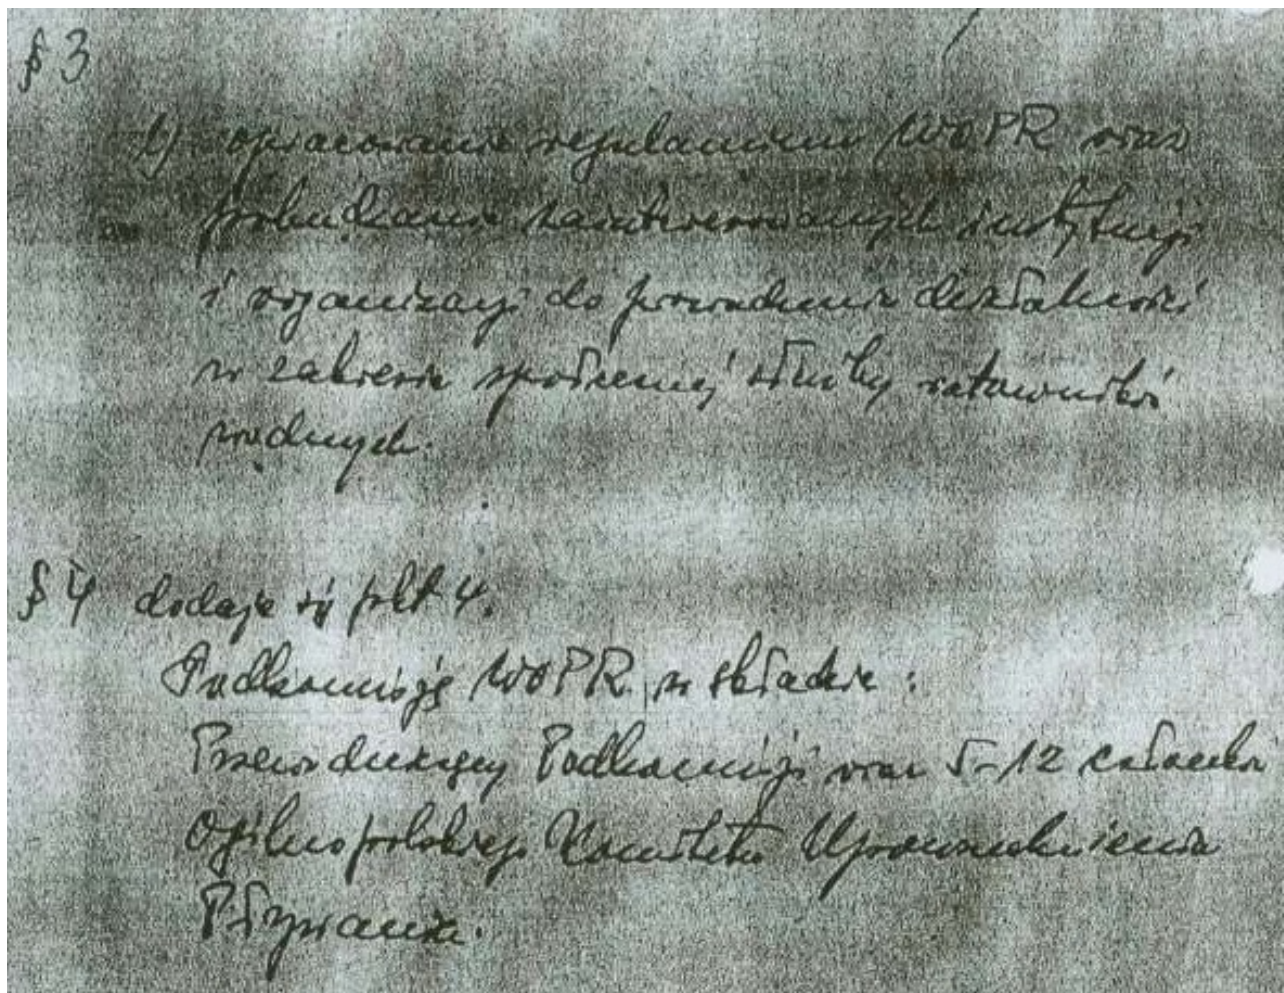 § 3
b) opracowanie regulaminu WOPR oraz
pobudzanie zainteresowanych instytucji
i organizacji do prowadzenia działalności
w zakresie społecznej służby ratowników
wodnych.
§ 4 dodaje się pkt 4.
Podkomisję WOPR w składzie :
Przewodniczący Podkomisji oraz 5-12 członków
Ogólnopolskiego Komitetu Upowszechnienia
Pływania.